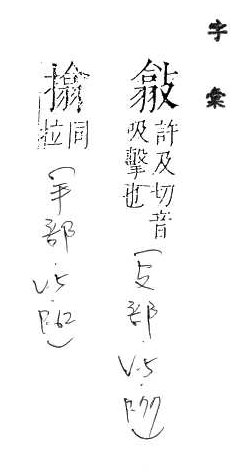 字彙
許及切音
吸擊也
(攴部.V.5.P.77)
㩉
同
拉
(手部.V.5.P.62)